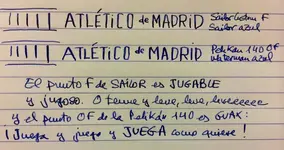 ATLÉTICO de MADRID Sailor F
Sailor azul
ATLÉTICO de MADRID Pelikan 140 OF
Waterman azul
El punto F de SAILOR es JUGABLE
y jugoso. O tenue y leve, leve,
y el punto OF de la Pelikán 140 es GUAY:
¡Juega y juego y JUEGA como quiere!